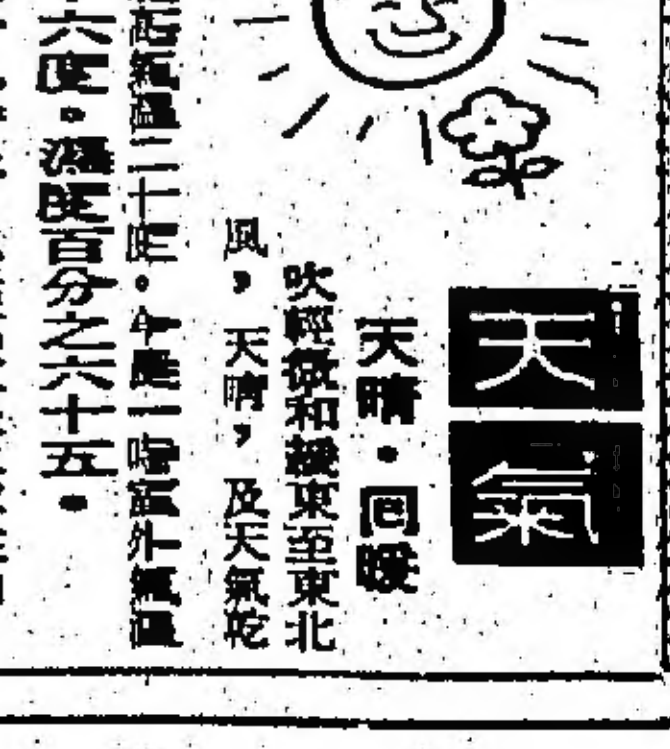 天氣
天晴•回暖
吹輕微和緩東至東北
風,天晴,及天氣乾
氣溫二十度。今晨一時室外氣溫
六度。濕度百分之六十五。